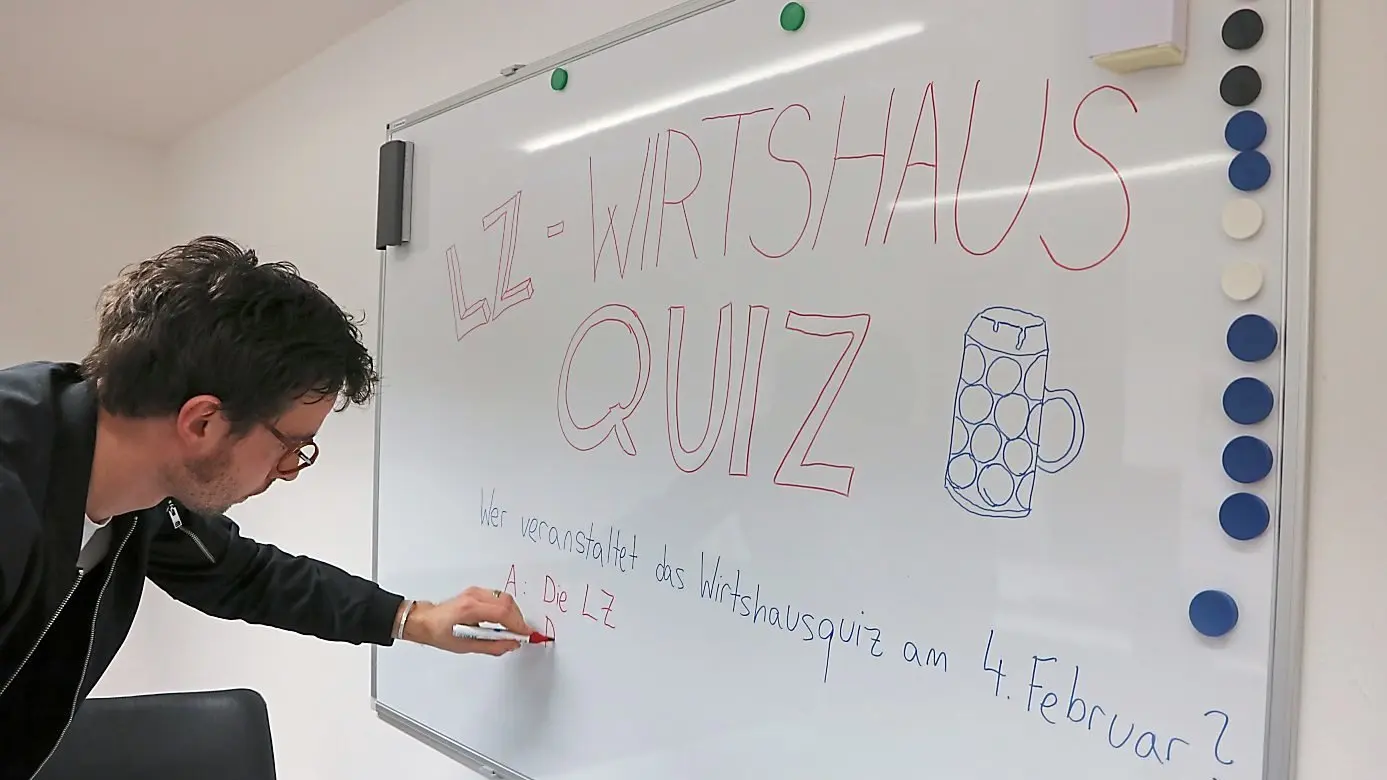 LZ - WIRTSHAUS
QUIZ
Wer veranstaltet das Wirtshausquiz am 4. Februar?
A: Die LZ